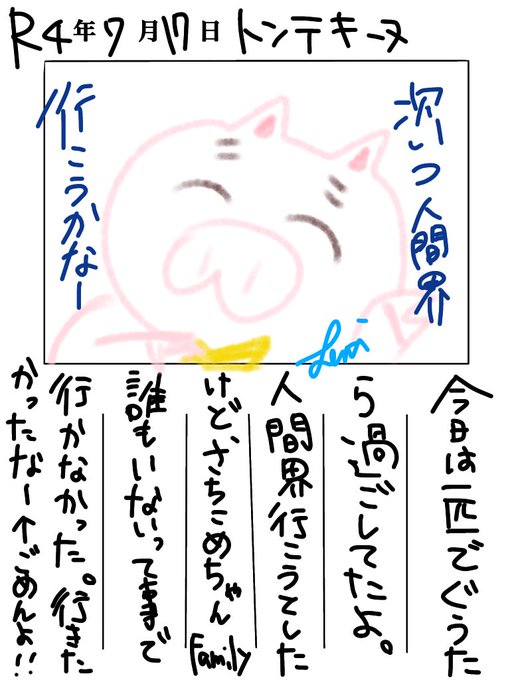 R4年7月17日 トンテキーヌ
次いつ人間界
行こうかなー
今日は一匹でぐうた
ら過ごしてたよ。
人間界行こうてした
けど、さちこめちゃんfamily
誰もいないって事で
行かなかった。行きた
かったなー↑ごめんよ!!